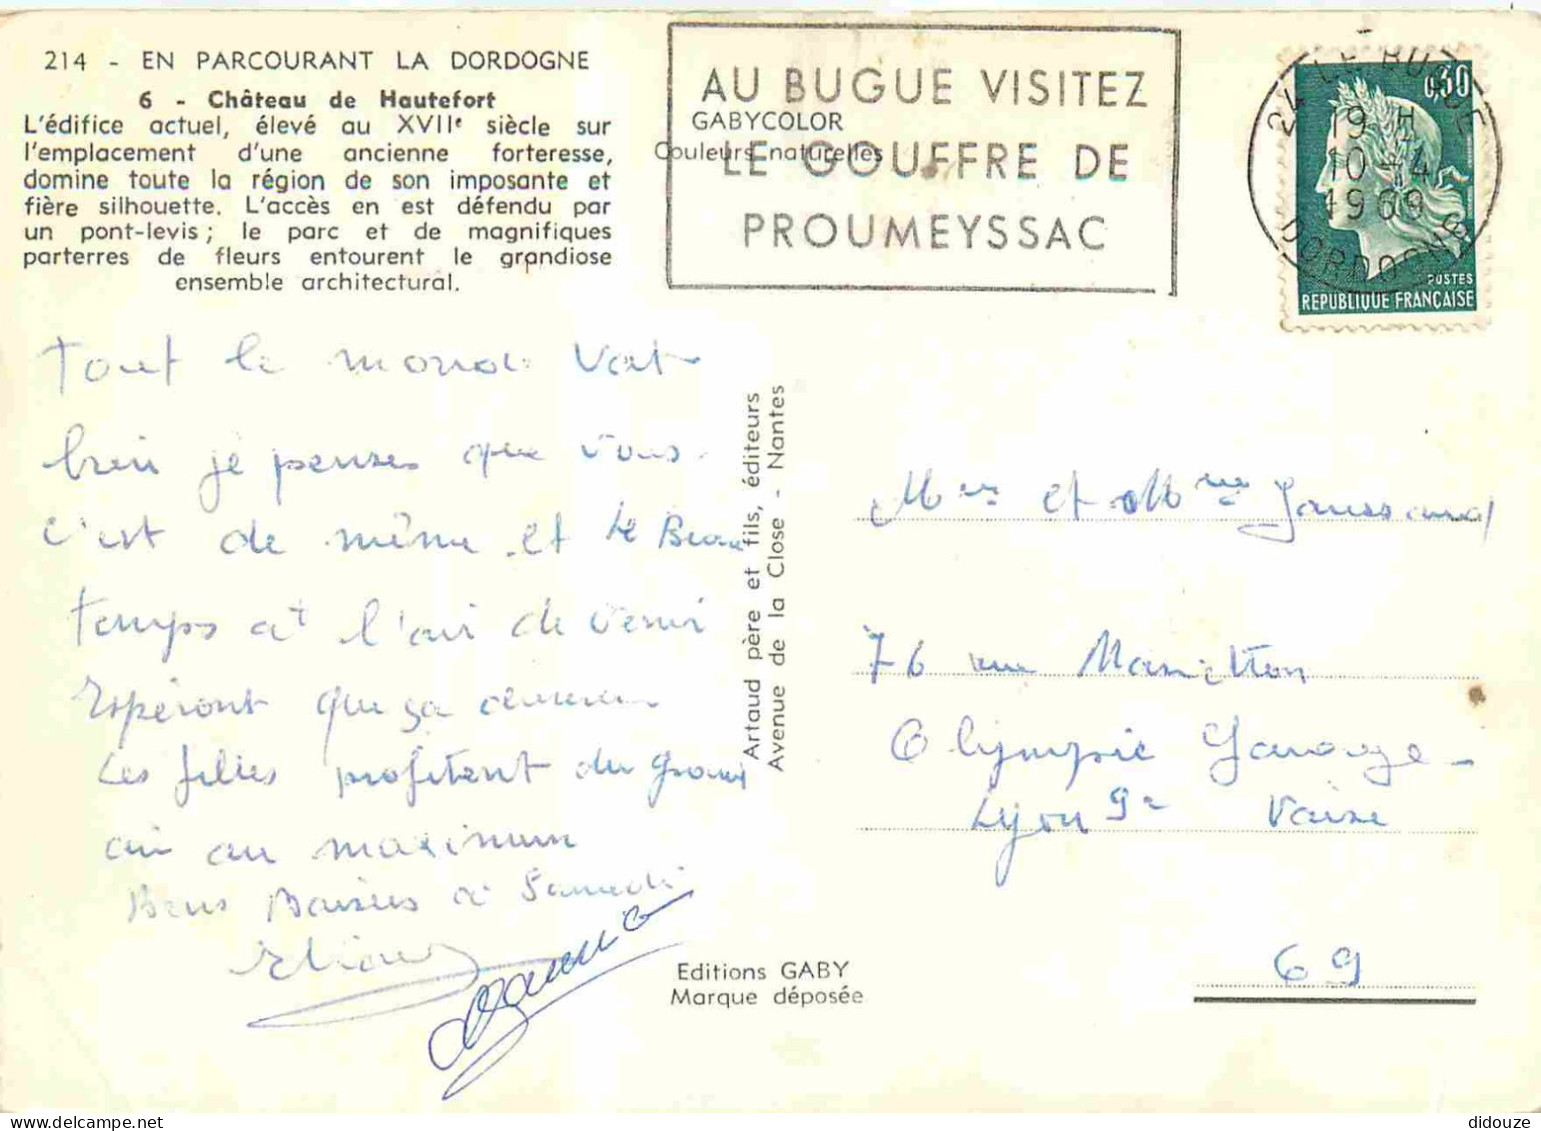 214 - EN PARCOURANT LA DORDOGNE
6 - Château de Hautefort
L'édifice actuel, élevé au XVIIe siècle sur
l'emplacement d'une ancienne forteresse,
domine toute la région de son imposante et
fière silhouette. L'accès en est défendu par
un pont-levis ; le parc et de magnifiques
parterres de fleurs entourent le grandiose
ensemble architectural.
AU BUGUE VISITEZ
GABYCOLOR
Couleurs naturelles
LE GOUFFRE DE
PROUMEYSSAC
24 LE BUGUE
19 H
10 - 4
1969
DORDOGNE
0,30
POSTES
REPUBLIQUE FRANÇAISE
Tout le monde vat
bien je penses que vous
c'est de même et le Beau
temps at l'air de venir
Espéront que ça
Les filles profitent du grand
air au maximum
Bons Baisers à Samedi
Eliane
Artaud père et fils, éditeurs
Avenue de la Close - Nantes
et Mme Joussand
76 rue
Olympic Garage
Lyon 9e Vaise
69
Editions GABY
Marque déposée
didouze